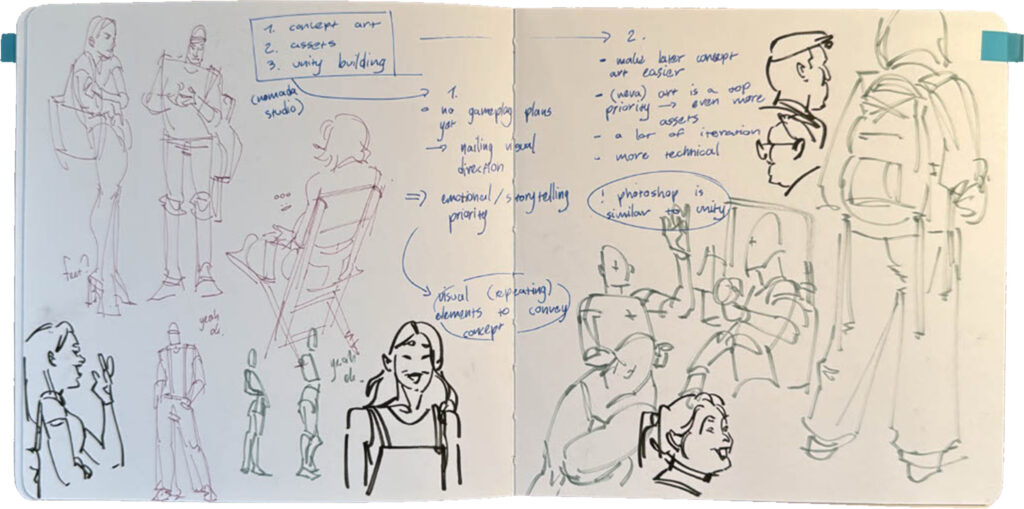 1. concept art
2. assets
3. unity building
(nomada
studio)
1.
no gameplay plans
yet
→ nailing visual
direction
⇒ emotional/storytelling
priority
visual (repeating)
elements to convey
concept
2.
- make later concept
art easier
- (neva) art is a top
priority → even more
assets
- a lot of iteration
- more technical
! photoshop is
similar to unity
...
feet?
yeah
ok
yeah
ok.